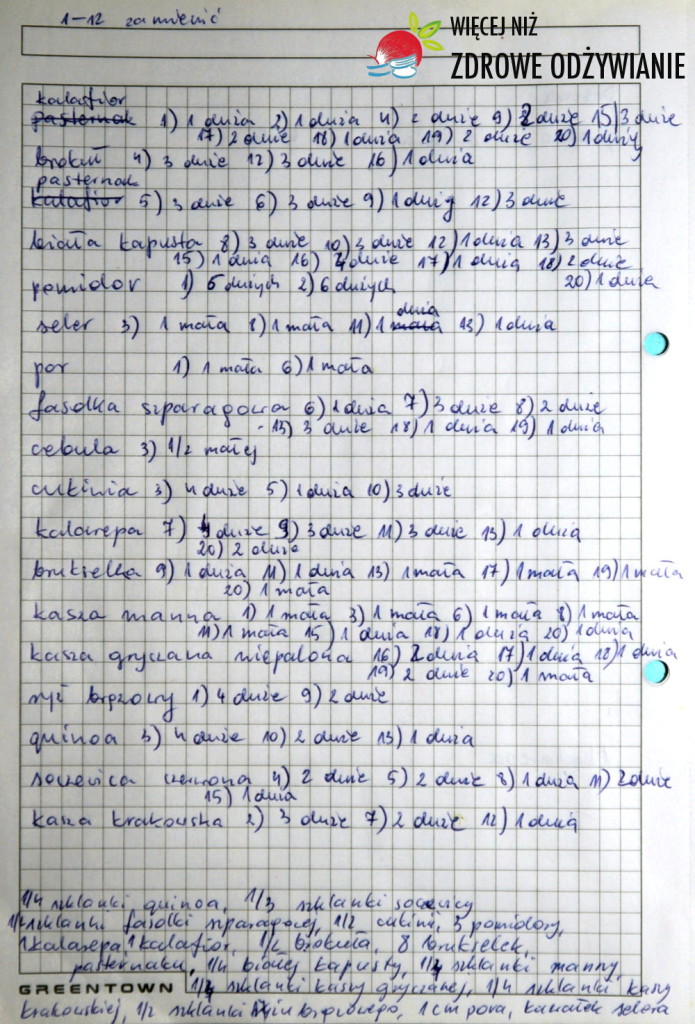 1-12 zamienić
WIĘCEJ NIŻ
ZDROWE ODŻYWIANIE
kalafior
pasternak 1) 1 duża 2) 1 duża 4) 2 duże 9) 2 duże 15) 3 duże
17) 2 duże 18) 1 duża 19) 2 duże 20) 1 duży
brokuł 4) 3 duże 12) 3 duże 16) 1 duża
pasternak
kalafior 5) 3 duże 6) 3 duże 9) 1 duży 12) 3 duże
biała kapusta 8) 3 duże 10) 3 duże 12) 1 duża 13) 3 duże
15) 1 duża 16) duże 17) 1 duża 18) 2 duże
20) 1 duża
pomidor 1) 5 dużych 2) 6 dużych
duża
seler 3) 1 mała 8) 1 mała 11) 1 mała 13) 1 duża
por 1) 1 mała 6) 1 mała
fasolka szparagowa 6) 1 duża 7) 3 duże 8) 2 duże
15) 3 duże 18) 1 duża 19) 1 duża
cebula 3) 1/2 małej
cukinia 3) 4 duże 5) 1 duża 10) 3 duże
kalarepa 7) duże 9) 3 duże 11) 3 duże 13) 1 duża
20) 2 duże
brukselka 9) 1 duża 11) 1 duża 13) 1 mała 17) 1 mała 19) 1 mała
20) 1 mała
kasza manna 1) 1 mała 3) 1 mała 6) 1 mała 8) 1 mała
11) 1 mała 15) 1 duża 18) 1 duża 20) 1 duża
kasza gryczana niepalona 16) 2 duża 17) 1 duża 18) 1 duża
19) 2 duże 20) 1 mała
ryż brązowy 1) 4 duże 9) 2 duże
quinoa 3) 4 duże 10) 2 duże 13) 1 duża
soczewica czerwona 4) 2 duże 5) 2 duże 8) 1 duża 11) 2 duże
15) 1 duża
kasza krakowska 2) 3 duże 7) 2 duże 12) 1 duża
1/4 szklanki quinoa, 1/3 szklanki soczewicy
szklanki fasolki szparagowej, 1/2 cukinii, 3 pomidory,
1 kalarepa 1 kalafior, 1/2 brokuła, 8 brukselek,
pasternaku, 1/4 białej kapusty, szklanki manny,
GREENTOWN szklanki kaszy gryczanej, 1/4 szklanki kaszy
krakowskiej, 1/2 szklanki ryżu brązowego, 1 cm pora, kawałek selera